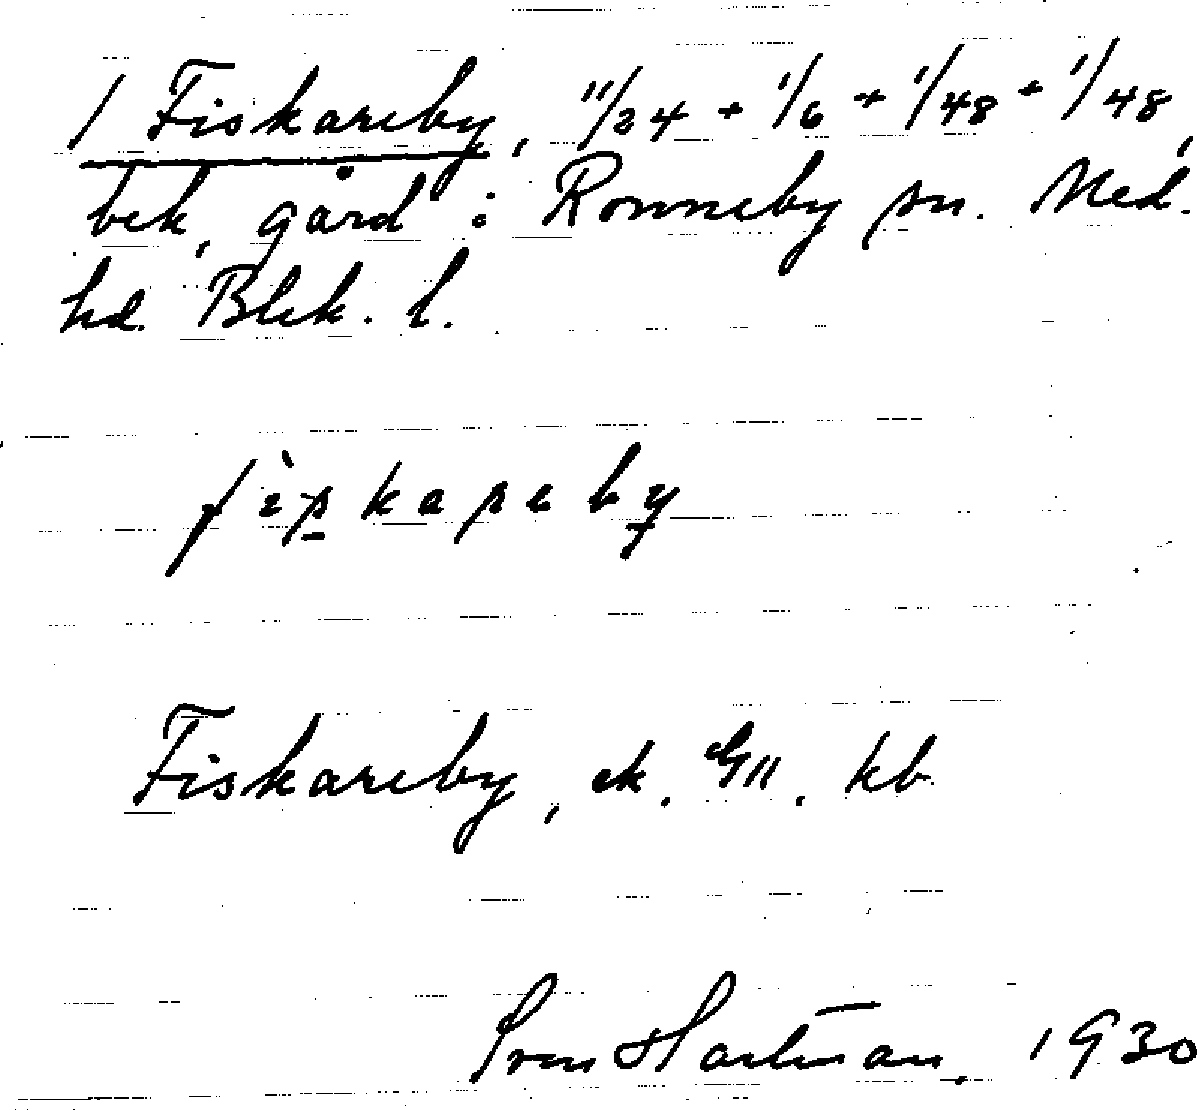 1 Fiskareby, 11/24 + 1/6 + 1/48 + 1/48,
bek. gård i Ronneby sn. Med.
hd. Blek. l.
fiskareby
Fiskareby, ek. Gll. kb
Sven Hartman. 1930